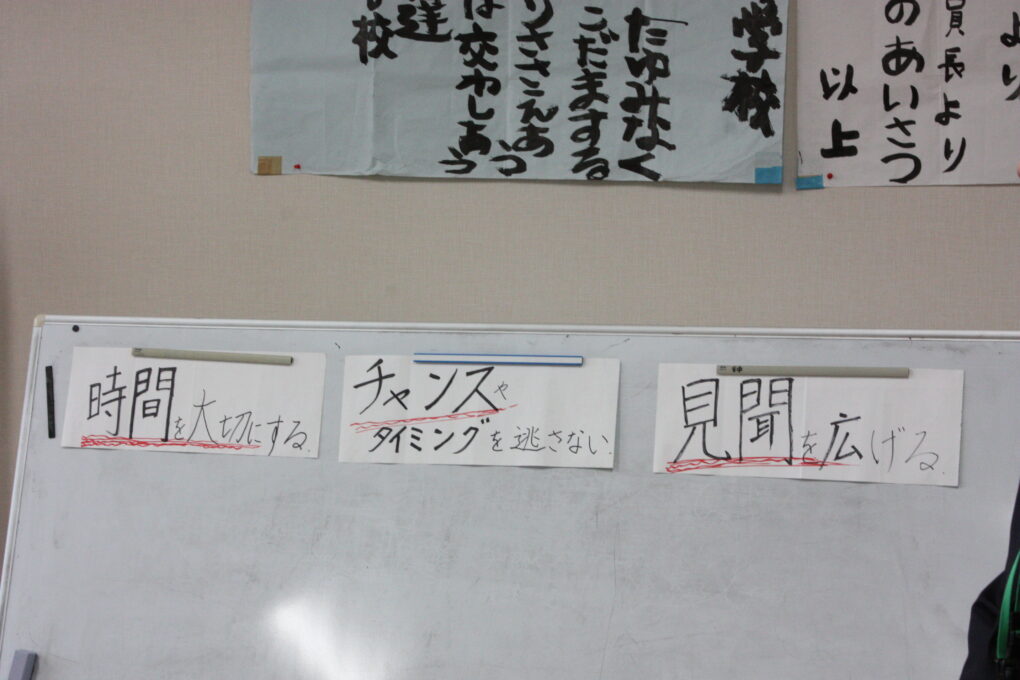 学校
「たゆみなく
こだまする
りささえあい
は交わしあう
達
校
より
員長より
のあいさつ
以上
時間を大切にする.
チャンスや
タイミングを逃さない.
見聞を広げる.